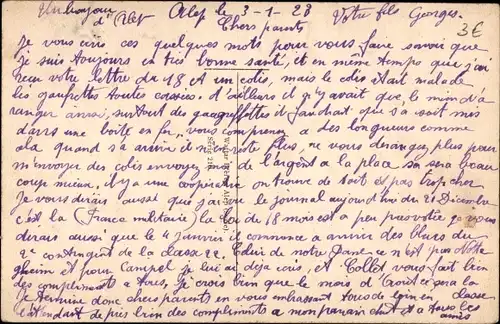 Un bonjour Alep le 3-1-23 Votre fils Georges.
d'Alep Chers parents 3€
Je vous écris ces quelques mots pour vous faire savoir que
je suis toujours en très bonne santé, et en même temps que j'ai
reçu votre lettre du 18 et un colis, mais le colis était malade
les gaufrettes toutes cassées. d'ailleurs il n'y avait que le moin d'a
ranger aussi, surtout des gaugreffettes il faudrait que sa soit mis
dans une boite en fer, vous comprenez a des longueurs comme
sla quand sa arrive il ne reste plus, ne vous dérangez plus pour
m'envoyer des colis envoyez moi de l'argent a la place sa sera beau
coup mieux, il y a une coopérative on trouve de tout et pas trop cher
Je vous dirais aussi que j'ai vu le journal aujourd'hui du 21 Décembre
c'est la (France militaire) la loi de 18 mois est a peu pres votée je vous
dirais aussi que le 4 janvier il commence a arriver des bleus du
2e contingent de la classe 22. Celui de notre
et pour Campel je lui ai déja écris, et Collet vous fait bien
des compliments a tous, je crois bien que le mois d' sera la
Je termine donc chers parents en vous embrassant tous de loin en classe
attendant de près bien des compliments a mon parrain et a tous les
amis